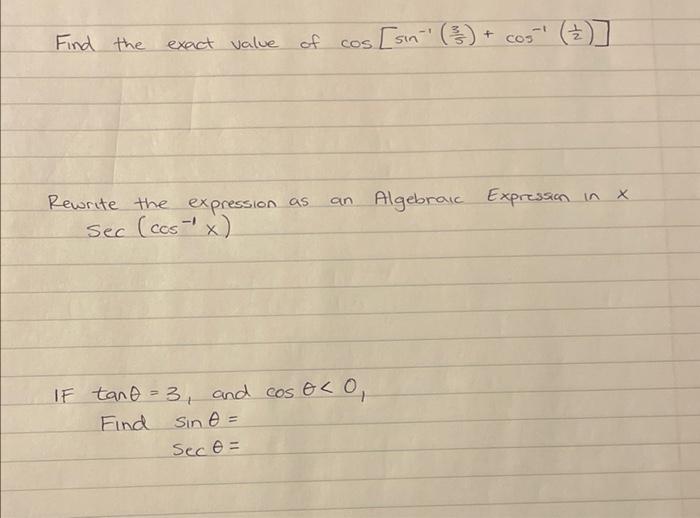 Find the exact value of cos [sin⁻¹ (3/5) + cos⁻¹ (1/2)]
Rewrite the expression as an Algebraic Expression in x
Sec (cos⁻¹ x)
IF tanθ = 3, and cos θ < 0,
Find sin θ =
Sec θ =